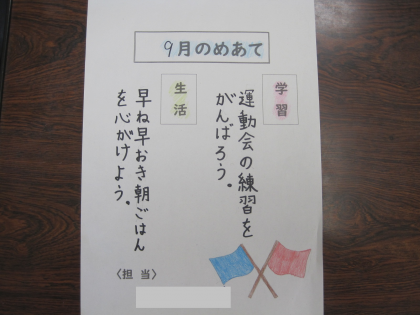 9月のめあて
学習
運動会の練習を
がんばろう。
生活
早ね早おき朝ごはん
を心がけよう。
〈担当〉